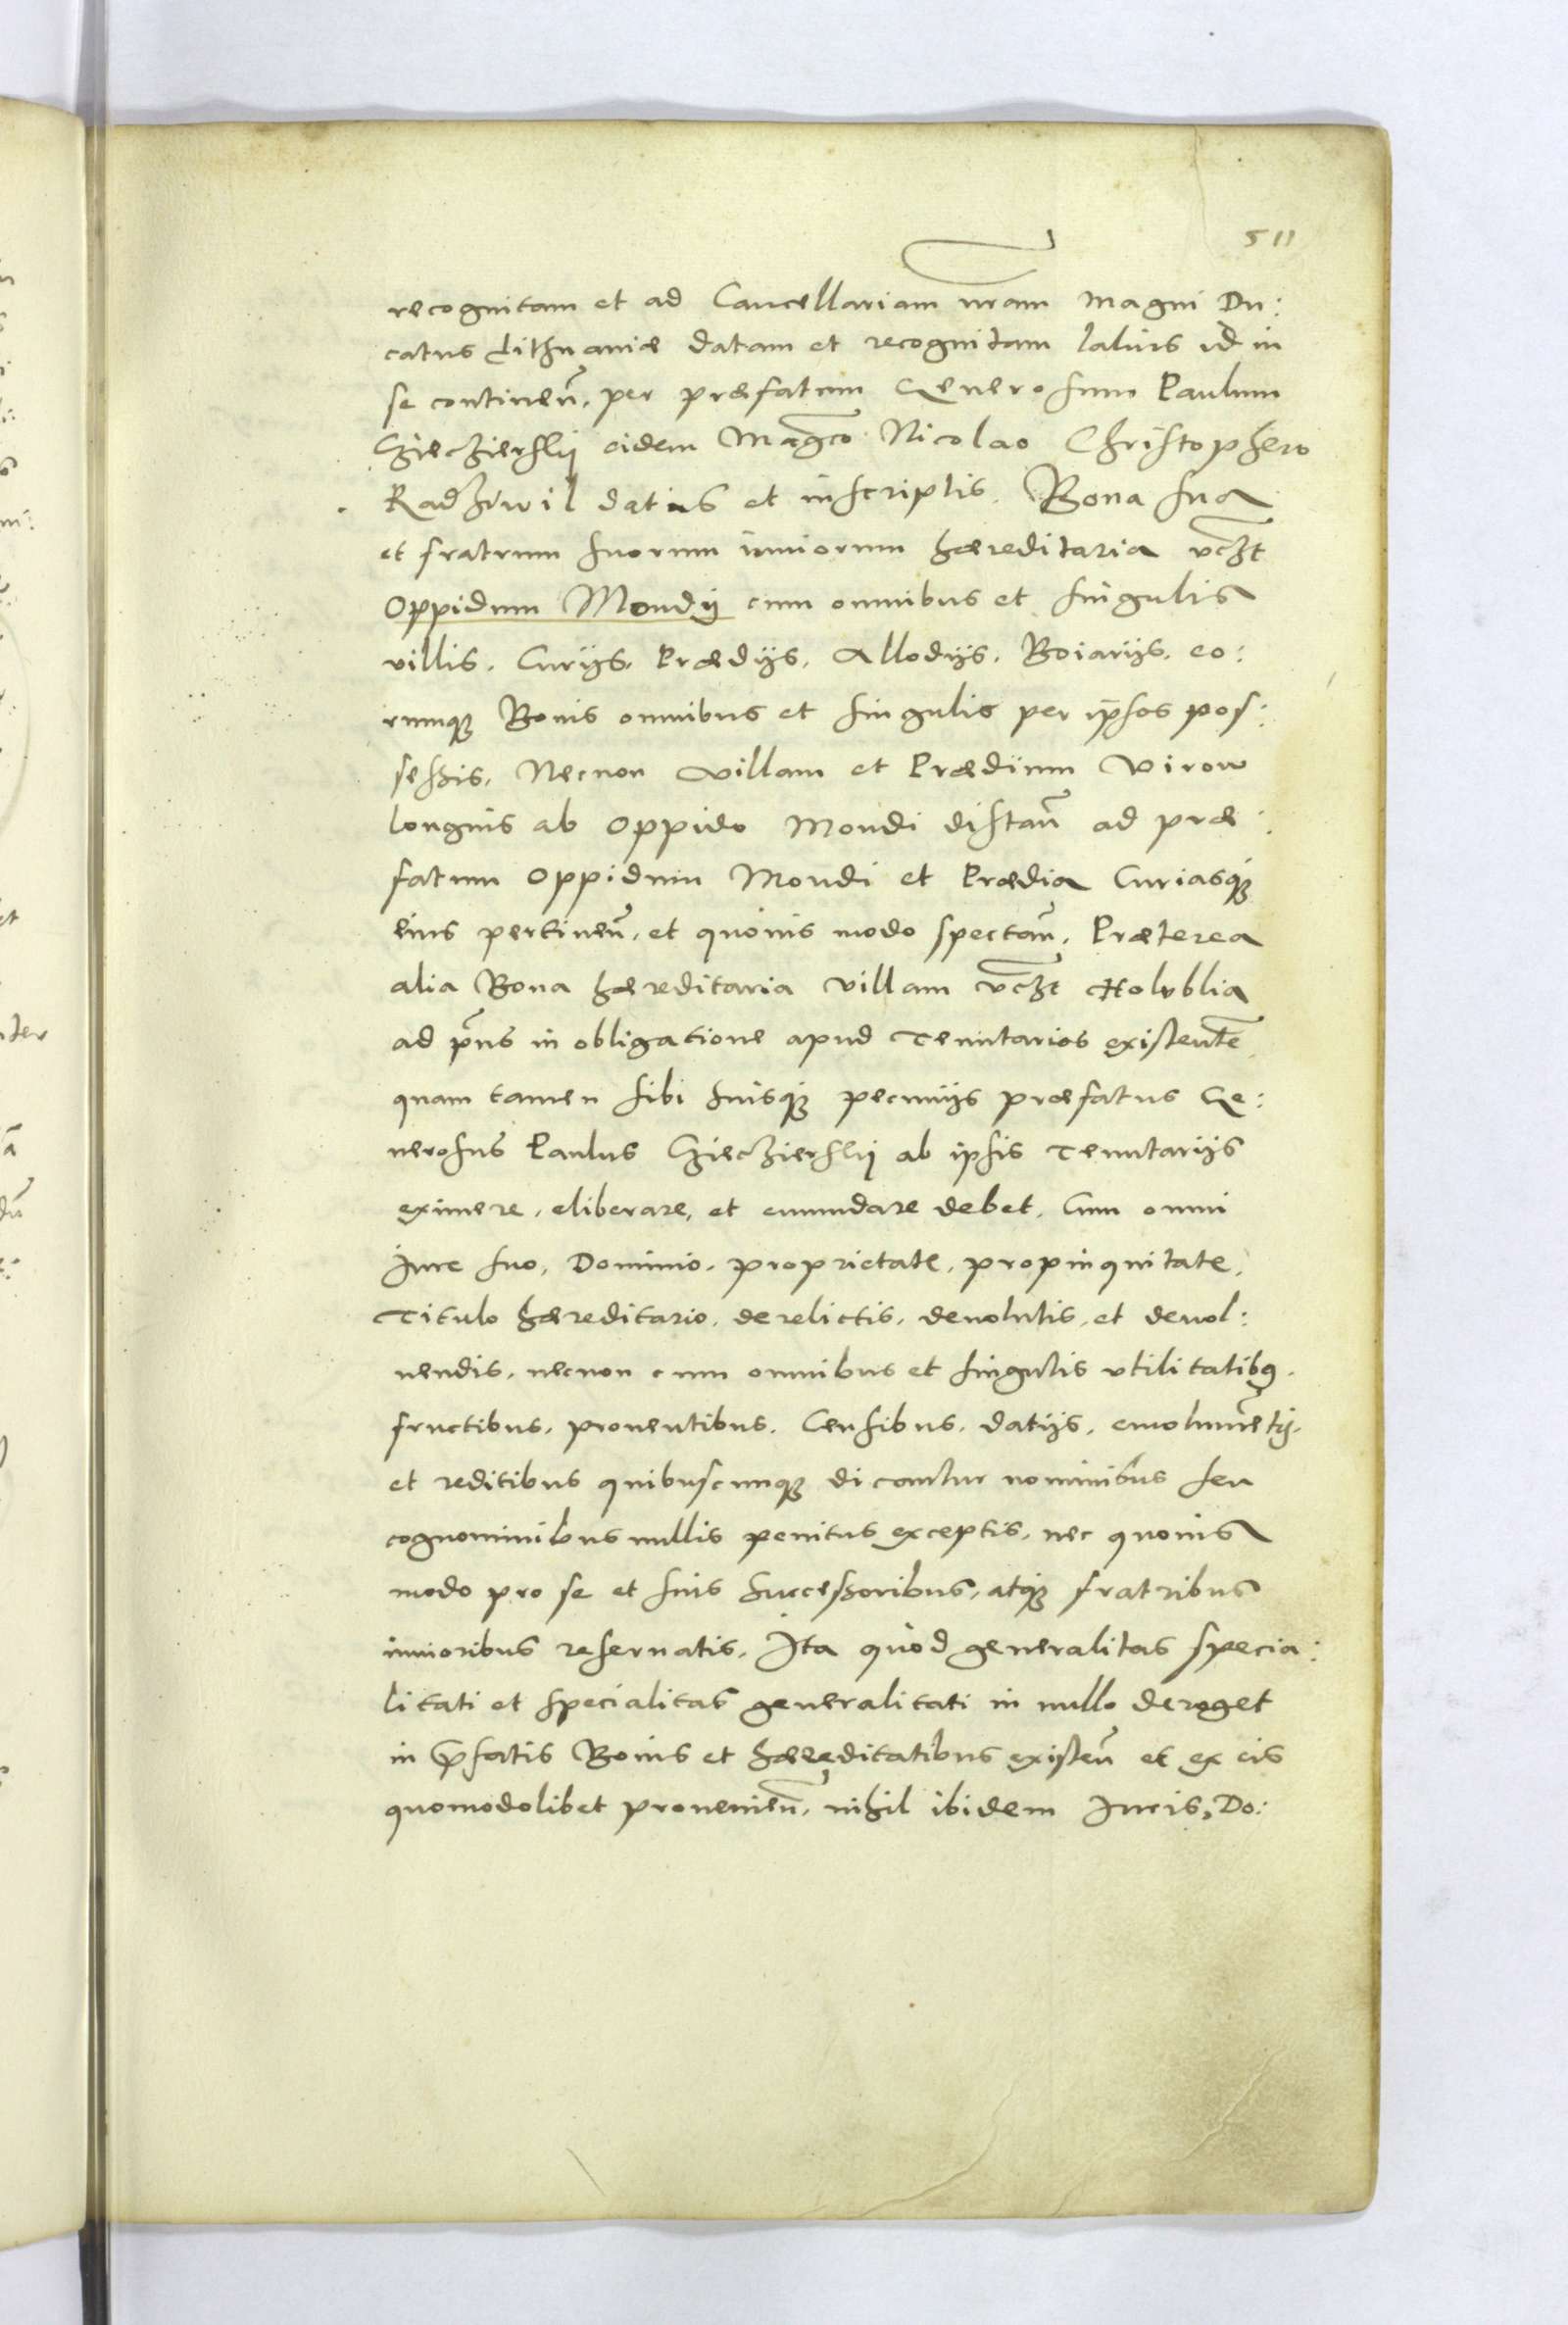 511
recognitam et ad Cancellariam nr̃am Magni Du:
catus Lithuaniæ datam et recognitam latius id in
se continen̄, per præfatum Generosum Paulum
Ciecziersky eidem Mag̃co Nicolao Christophero
Radziwil datis et inscriptis. Bona sua
et fratrum suorum iuniorum hæreditaria vc̃zt
Oppidum Mondÿ cum omnibus et singulis
villis, Curÿs, Prædÿs, Allodÿs, Boiarÿs, eo:
rumq; Bonis omnibus et singulis per ip̃sos pos:
sessis, Necnon villam et Prædium Virow
longius ab Oppido Mondi distan̄ ad præ:
fatum Oppidum Mondi et Prædia Curiasq;
eius pertinen̄, et quouis modo spectan̄, Præterea
alia Bona hæreditaria villam vc̃zt Holvblia
ad p̃ns in obligatione apud Tenutarios existentẽ
quam tamen sibi suisq; pecunÿs præfatus Ge:
nerosus Paulus Ciecziersky ab ipsis Tenutarÿs
eximere, eliberare, et emundare debet, Cum omni
Iure suo, Dominio, proprietate, propinquitate,
Titulo hæreditario, derelictis, deuolutis, et deuol:
uendis, necnon cum omnibus et singulis vtilitatibq,
fructibus, prouentibus, Censibus, datÿs, emolumẽtÿ,
et reditibus quibuscunq; dicantur nominibus seu
cognominibus nullis penitus exceptis, nec quouis
modo pro se et suis Successoribus, atq; fratribus
iunioribus reseruatis, Ita quod generalitas specia:
litati et specialitas generalitati in nullo deroget
in p̃fatis Bonis et hæreditatibus existen̄ et ex eis
quomodolibet prouenien̄, nihil ibidem Iuris, Do: